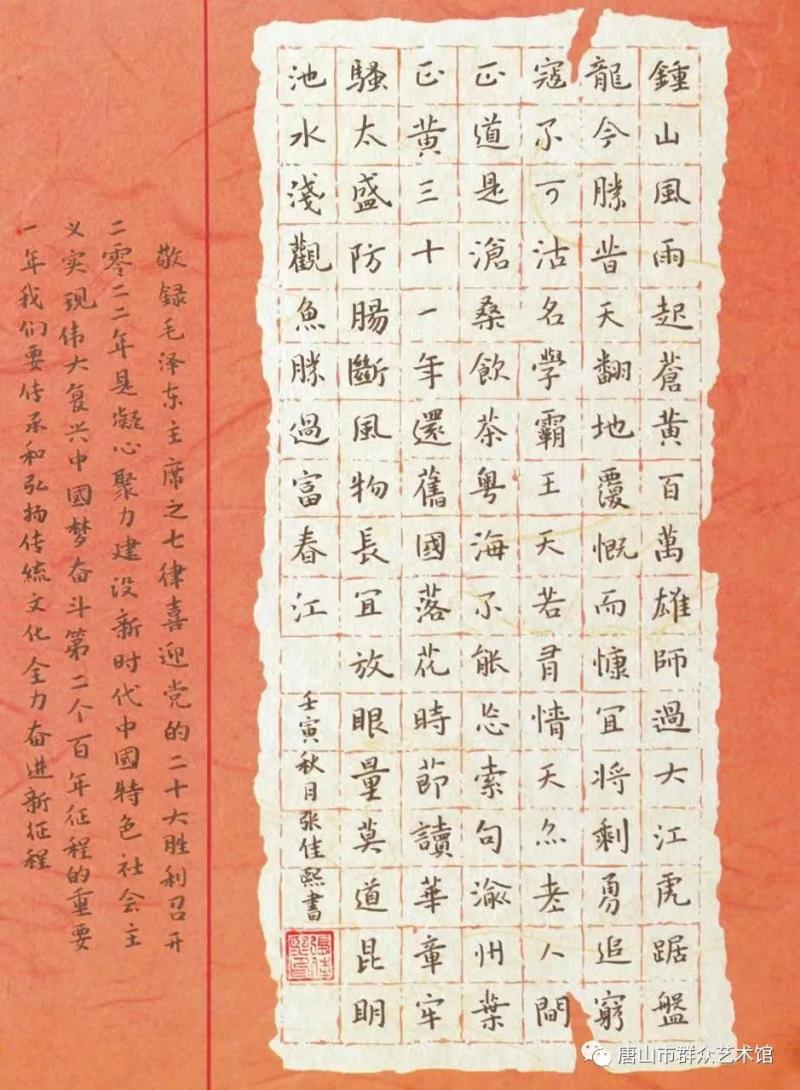 鍾山風雨起蒼黄百萬雄師過大江虎踞盤
龍今勝昔天翻地覆慨而慷宜将剩勇追窮
寇不可沽名學霸王天若有情天亦老人間
正道是滄桑飲茶粤海不能忘索句渝州葉
正黄三十一年還舊國落花時節讀華章牢
騷太盛防腸斷風物長宜放眼量莫道昆明
池水淺觀魚勝過富春江
壬寅秋月张佳熙書
敬録毛泽东主席之七律喜迎党的二十大胜利召开
二零二二年是凝心聚力建设新时代中國特色社会主
义实现伟大复兴中國梦奋斗第二个百年征程的重要
一年我们要传承和弘扬传统文化全力奋进新征程
唐山市群众艺术馆